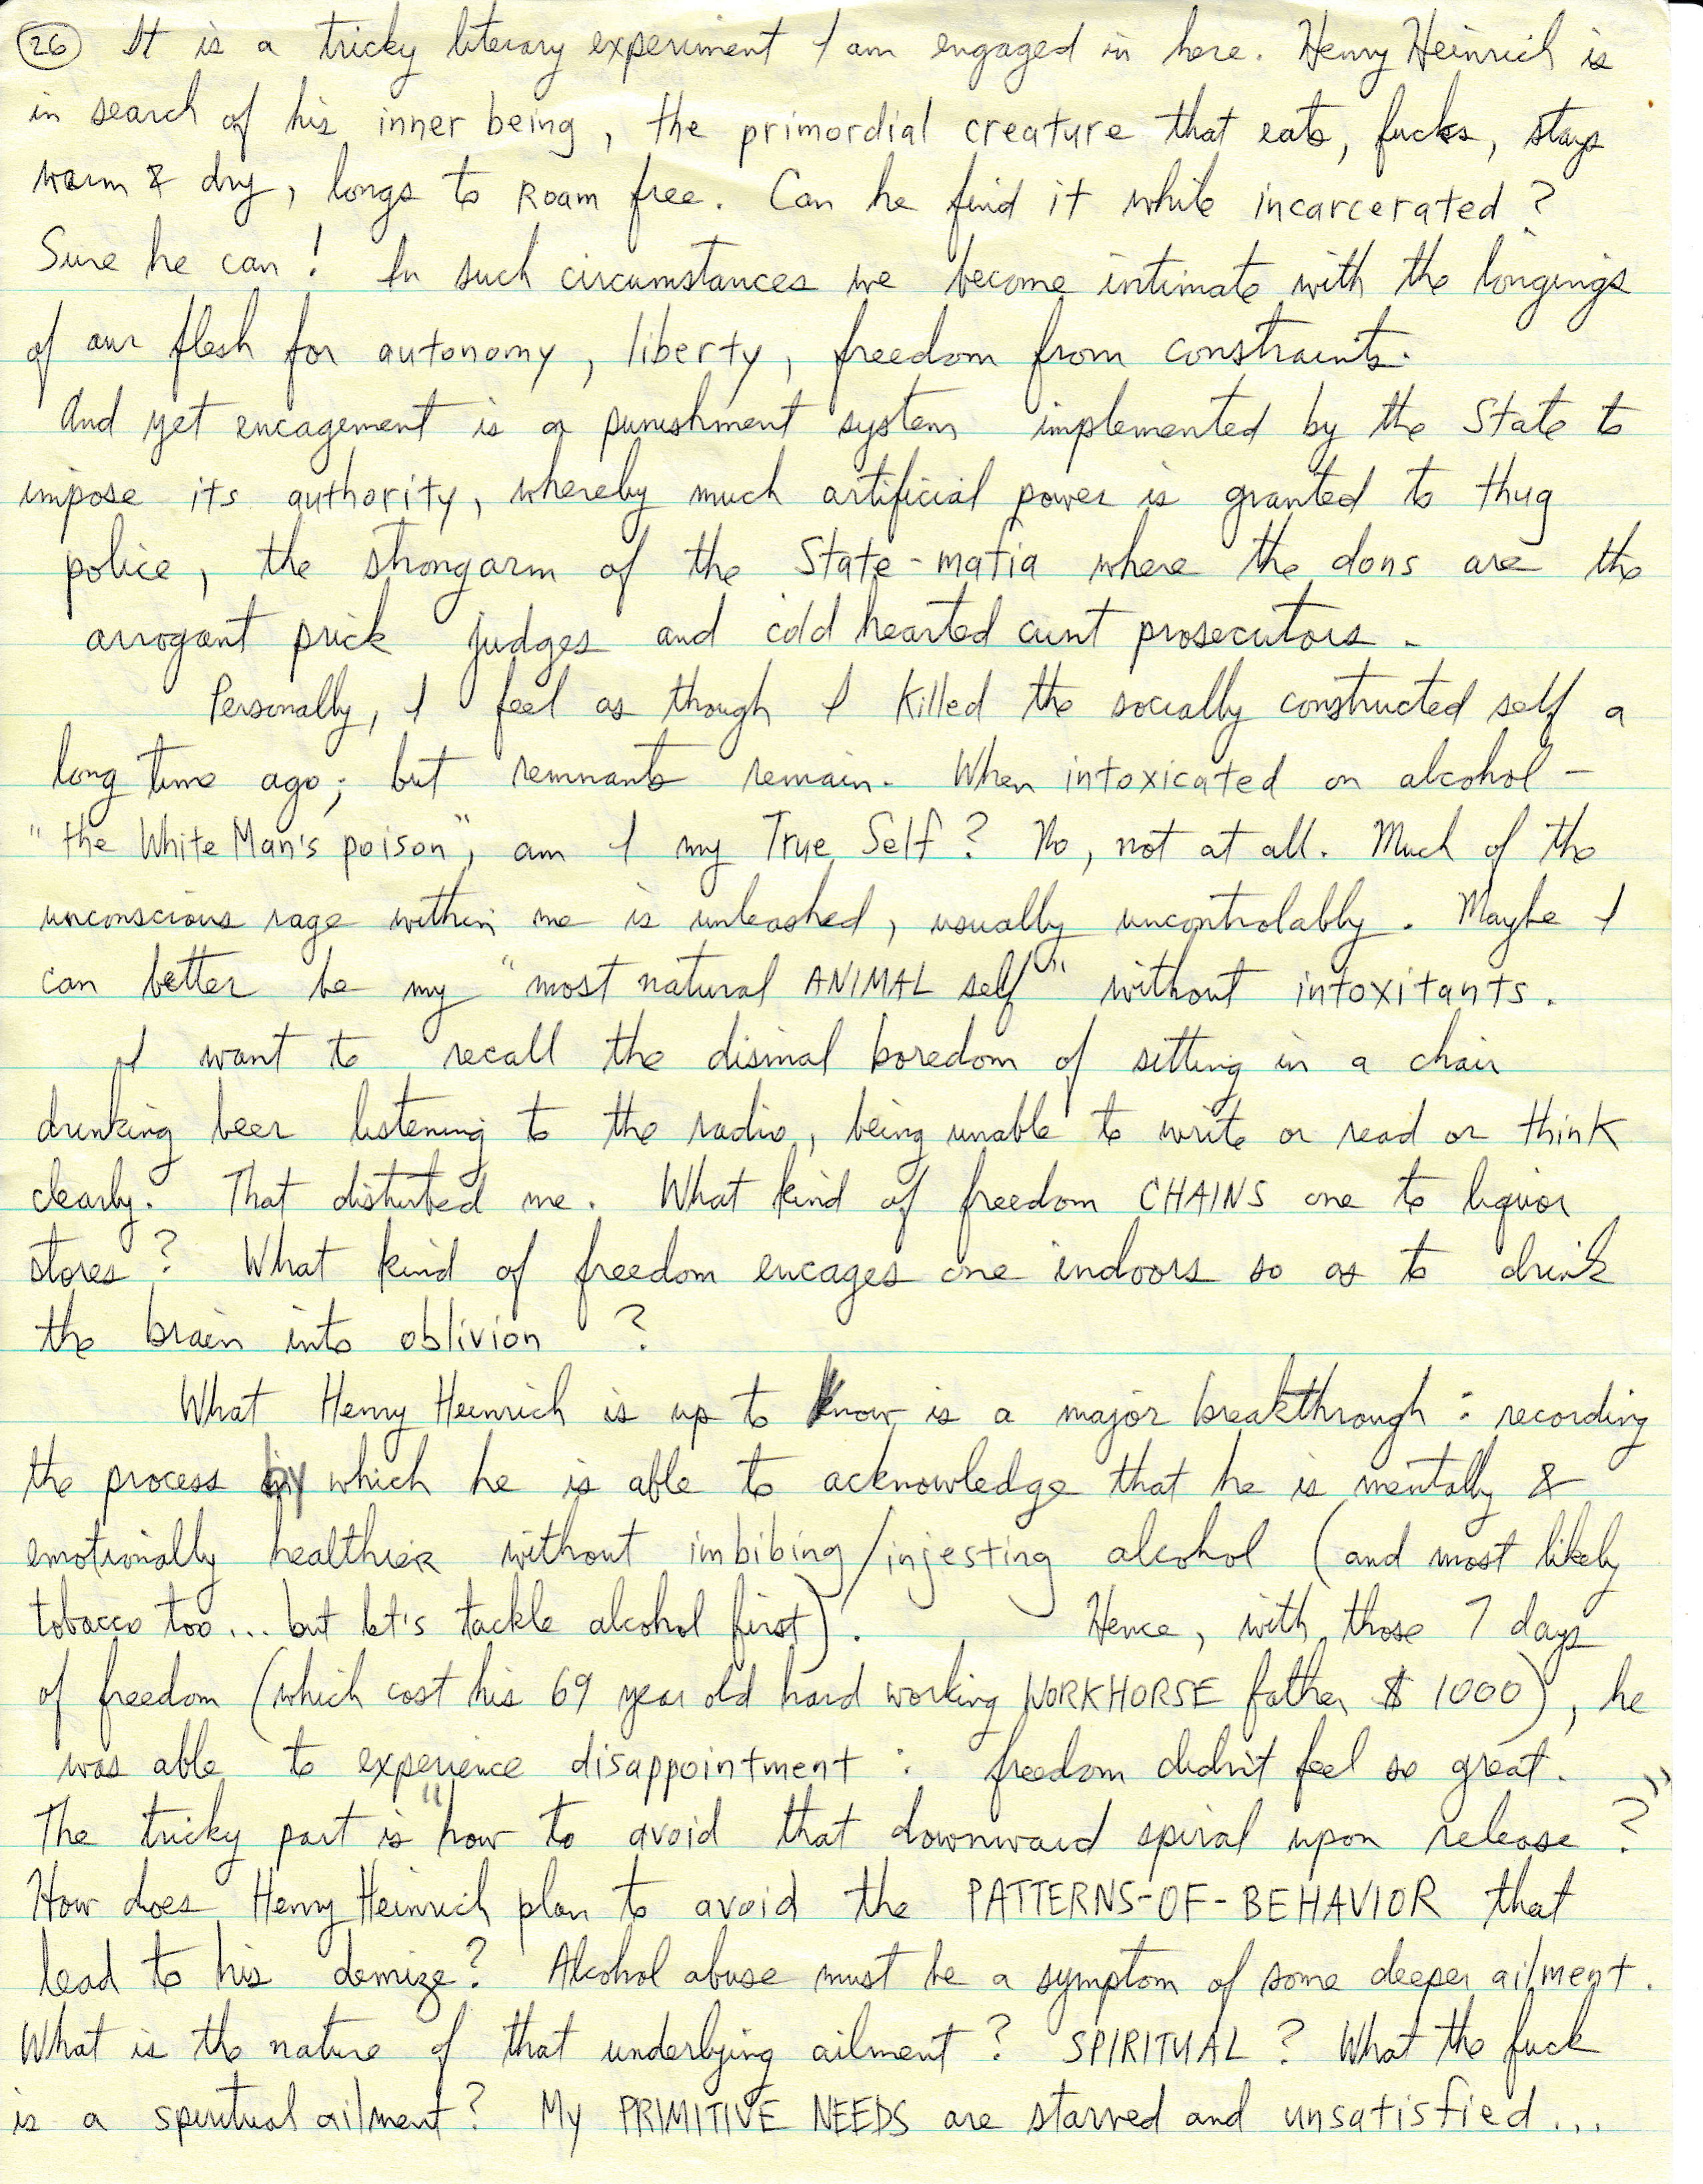 26 It is a tricky literary experiment I am engaged in here. Henry Heinrich is
in search of his inner being, the primordial creature that eats, fucks, stays
warm & dry, longs to ROAM free. Can he find it while incarcerated?
Sure he can! In such circumstances we become intimate with the longings
of our flesh for autonomy, liberty, freedom from constraints.
And yet encagement is a punishment system implemented by the State to
impose its authority, whereby much artificial power is granted to thug
police, the strongarm of the State-mafia where the dons are the
arrogant prick judges and cold hearted cunt prosecutors.
Personally, I feel as though I killed the socially constructed self a
long time ago; but remnants remain. When intoxicated on alcohol -
"the White Man's poison", am I my True Self? No, not at all. Much of the
unconscious rage within me is unleashed, usually uncontrolably. Maybe I
can better be my "most natural ANIMAL self" without intoxitants.
I want to recall the dismal boredom of sitting in a chair
drinking beer listening to the radio, being unable to write or read or think
clearly. That disturbed me. What kind of freedom CHAINS one to liquor
stores? What kind of freedom encages one indoors so as to drink
the brain into oblivion?
What Henry Heinrich is up to know is a major breakthrough: recording
the process by which he is able to acknowledge that he is mentally &
emotionally healthier without imbibing/injesting alcohol (and most likely
tobacco too... but let's tackle alcohol first). Hence, with those 7 days
of freedom (which cost his 69 year old hard working WORKHORSE father $1000), he
was able to experience disappointment: freedom didn't feel so great.
The tricky part is "how to avoid that downward spiral upon release?"
How does Henry Heinrich plan to avoid the PATTERNS-OF-BEHAVIOR that
lead to his demize? Alcohol abuse must be a symptom of some deeper ailment.
What is the nature of that underlying ailment? SPIRITUAL? What the fuck
is a spiritual ailment? My PRIMITIVE NEEDS are starved and unsatisfied...